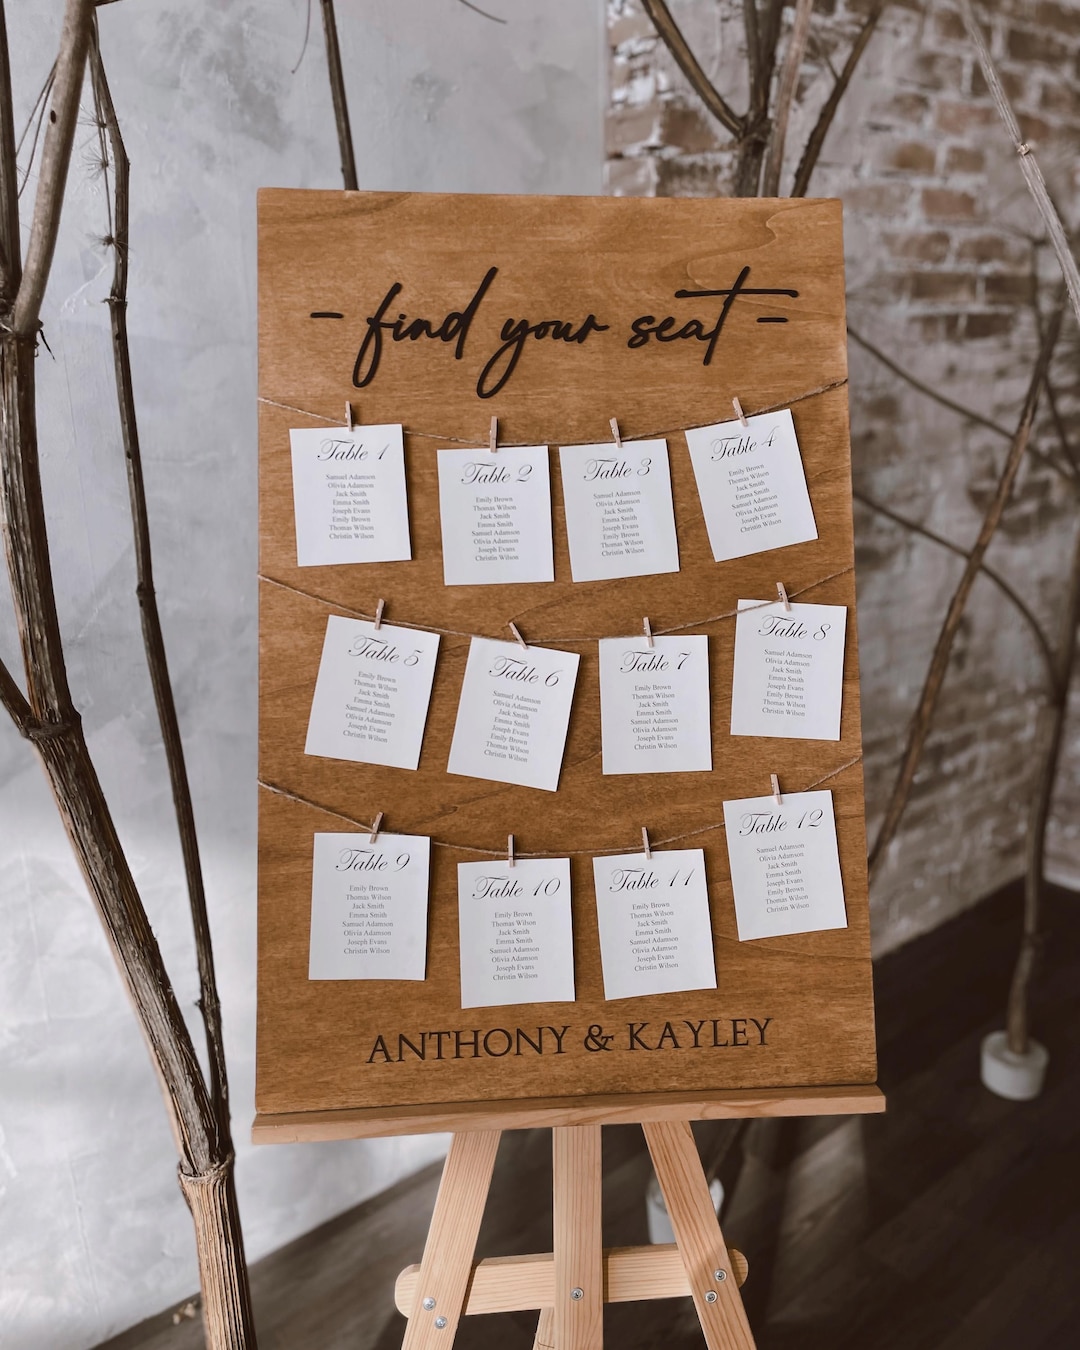 - find your seat -
Table 1
Samuel Adamson
Olivia Adamson
Jack Smith
Emma Smith
Joseph Evans
Emily Brown
Thomas Wilson
Christin Wilson
Table 2
Emily Brown
Thomas Wilson
Jack Smith
Emma Smith
Samuel Adamson
Olivia Adamson
Joseph Evans
Christin Wilson
Table 3
Samuel Adamson
Olivia Adamson
Jack Smith
Emma Smith
Joseph Evans
Emily Brown
Thomas Wilson
Christin Wilson
Table 4
Emily Brown
Thomas Wilson
Jack Smith
Emma Smith
Samuel Adamson
Olivia Adamson
Joseph Evans
Christin Wilson
Table 5
Emily Brown
Thomas Wilson
Jack Smith
Emma Smith
Samuel Adamson
Olivia Adamson
Joseph Evans
Christin Wilson
Table 6
Samuel Adamson
Olivia Adamson
Jack Smith
Emma Smith
Joseph Evans
Emily Brown
Thomas Wilson
Christin Wilson
Table 7
Emily Brown
Thomas Wilson
Jack Smith
Emma Smith
Samuel Adamson
Olivia Adamson
Joseph Evans
Christin Wilson
Table 8
Samuel Adamson
Olivia Adamson
Jack Smith
Emma Smith
Joseph Evans
Emily Brown
Thomas Wilson
Christin Wilson
Table 9
Emily Brown
Thomas Wilson
Jack Smith
Emma Smith
Samuel Adamson
Olivia Adamson
Joseph Evans
Christin Wilson
Table 10
Emily Brown
Thomas Wilson
Jack Smith
Emma Smith
Samuel Adamson
Olivia Adamson
Joseph Evans
Christin Wilson
Table 11
Emily Brown
Thomas Wilson
Jack Smith
Emma Smith
Samuel Adamson
Olivia Adamson
Joseph Evans
Christin Wilson
Table 12
Samuel Adamson
Olivia Adamson
Jack Smith
Emma Smith
Joseph Evans
Emily Brown
Thomas Wilson
Christin Wilson
ANTHONY & KAYLEY